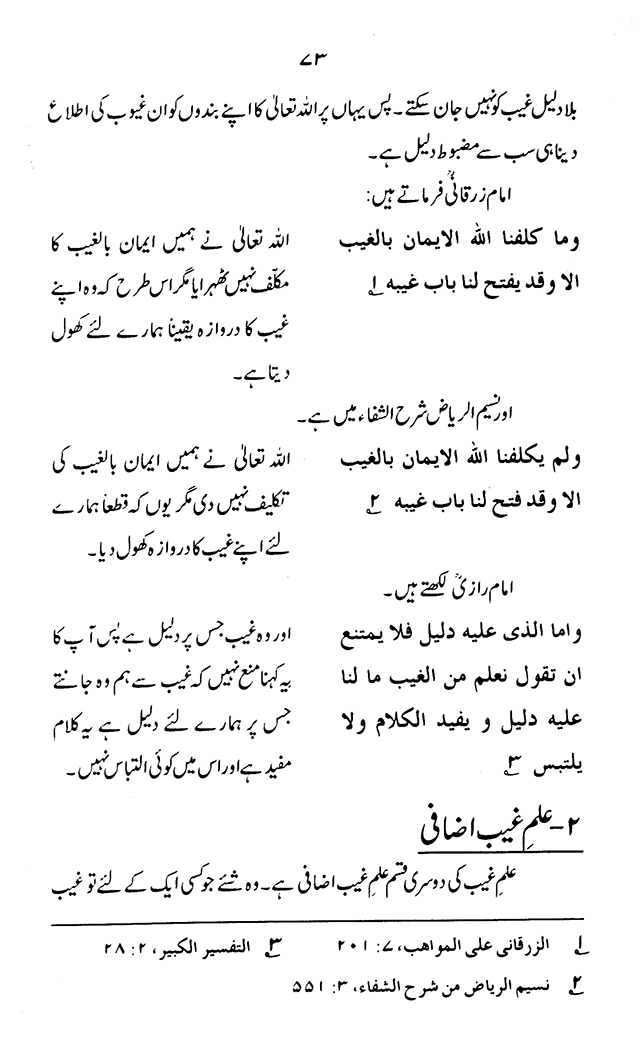 ۷۳
بلا دلیل غیب کو نہیں جان سکتے۔ پس یہاں پر اللہ تعالیٰ کا اپنے بندوں کو ان غیوب کی اطلاع
دینا ہی سب سے مضبوط دلیل ہے۔
امام زرقانیؒ فرماتے ہیں:
وما کلفنا الله الایمان بالغیب
الا وقد یفتح لنا باب غیبه ۱؎
اللہ تعالیٰ نے ہمیں ایمان بالغیب کا
مکلّف نہیں ٹھہرایا مگر اس طرح کہ وہ اپنے
غیب کا دروازہ یقیناً ہمارے لئے کھول
دیتا ہے۔
اور نسیم الریاض شرح الشفاء میں ہے۔
ولم یکلفنا الله الایمان بالغیب
الا وقد فتح لنا باب غیبه ۲؎
اللہ تعالیٰ نے ہمیں ایمان بالغیب کی
تکلیف نہیں دی مگر یوں کہ قطعاً ہمارے
لئے اپنے غیب کا دروازہ کھول دیا۔
امام رازیؒ لکھتے ہیں۔
واما الذی علیه دلیل فلا یمتنع
ان تقول نعلم من الغیب ما لنا
علیه دلیل و یفید الکلام ولا
یلتبس ۳؎
اور وہ غیب جس پر دلیل ہے پس آپ کا
یہ کہنا منع نہیں کہ غیب سے ہم وہ جانتے
جس پر ہمارے لئے دلیل ہے یہ کلام
مفید ہے اور اس میں کوئی التباس نہیں۔
۲- علمِ غیب اضافی
علمِ غیب کی دوسری قسم علمِ غیب اضافی ہے۔ وہ شئے جو کسی ایک کے لئے تو غیب
۱؎ الزرقانی علی المواهب، ۷: ۲۰۱
۳؎ التفسیر الکبیر، ۲: ۲۸
۲؎ نسیم الریاض من شرح الشفاء، ۳: ۵۵۱